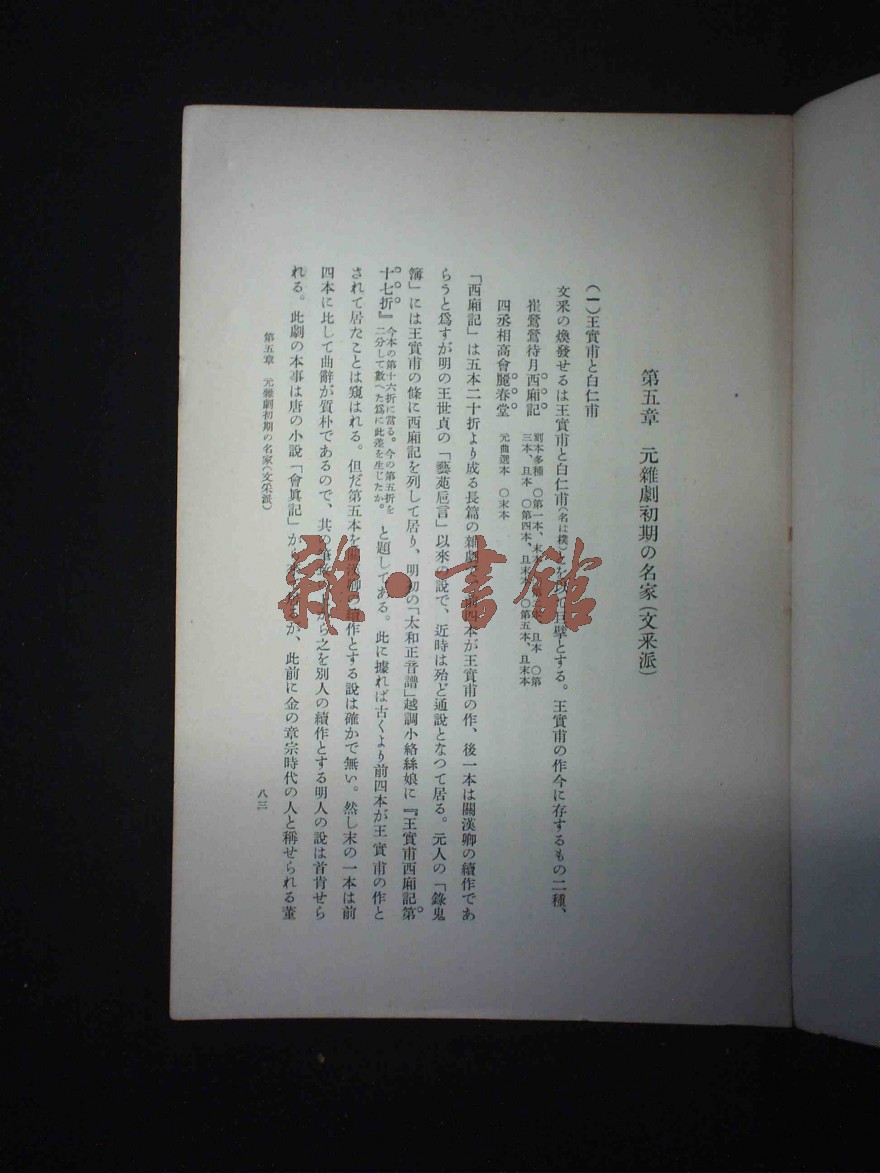 第五章 元雜劇初期の名家(文采派)
(一)王實甫と白仁甫
文采の煥發せるは王實甫と白仁甫(名は樸)とを以て巨擘とする。王實甫の作今に存するもの二種、
崔鶯鶯待月西廂記 別本多種 〇第一本、末本 旦本 〇第
三本、旦本 〇第四本、旦末本 〇第五本、旦末本
四丞相高會麗春堂 元曲選本 〇末本
「西廂記」は五本二十折より成る長篇の雜劇 前四本が王實甫の作、後一本は關漢卿の續作であ
らうと爲すが明の王世貞の「藝苑巵言」以來の說で、近時は殆ど通說となつて居る。元人の「錄鬼
簿」には王實甫の條に西廂記を列して居り、明初の「太和正音譜」越調小絡絲娘に『王實甫西廂記第
十七折』今本の第十六折に當る。今の第五折を二分して數へた爲に此差を生じたか。と題してある。此に據れば古くより前四本が王實甫の作と
されて居たことは窺はれる。但だ第五本を關漢卿の續作とする說は確かで無い。然し末の一本は前
四本に比して曲辭が質朴であるので、其の から之を別人の續作とする明人の說は首肯せら
れる。此劇の本事は唐の小說「會眞記」から るが、此前に金の章宗時代の人と稱せられる董
第五章 元雜劇初期の名家(文采派)
八三
雜·書館